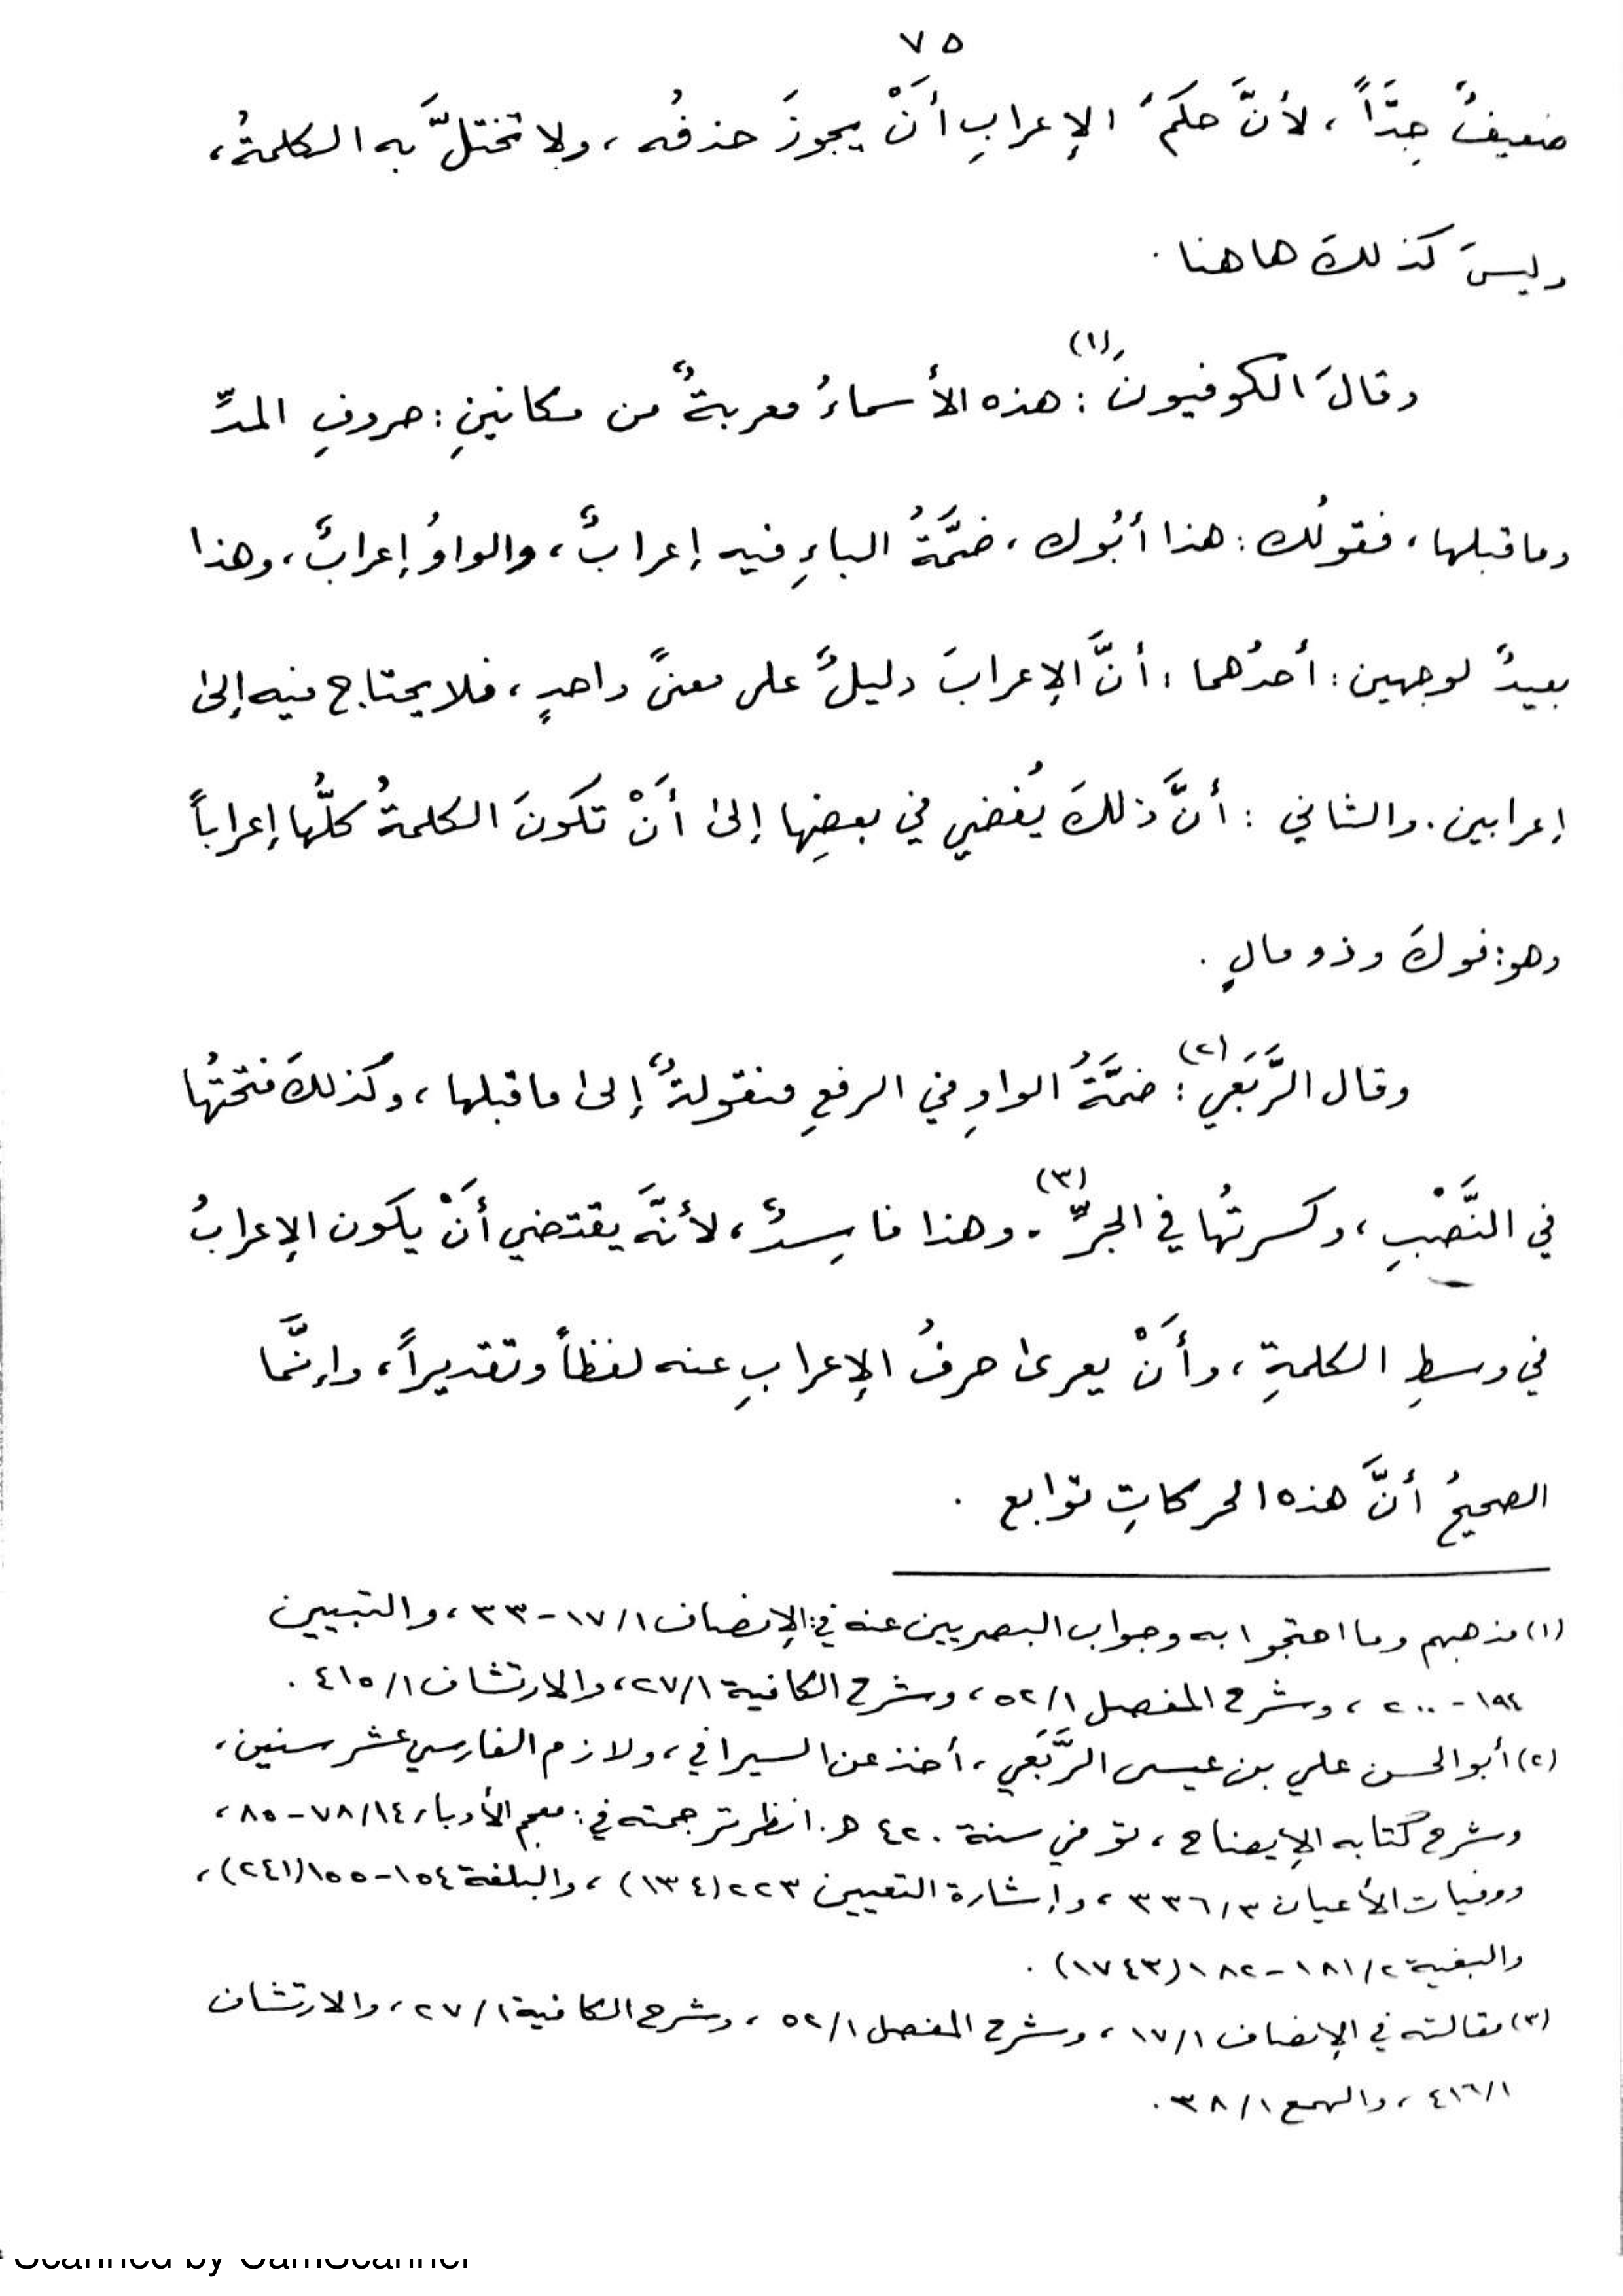 ٧٥
ضعيفٌ جِدَّاً ، لأنَّ حكمَ الإعرابِ أَنْ يجوزَ حذفُه ، ولا تختلَّ به الكلمةُ ،
وليسَ كذلكَ هاهنا .
وقالَ الكوفيونَ (١) : هذه الأسماءُ معربةٌ من مكانينِ : حروفِ المدِّ
وما قبلها ، فقولُك : هذا أبُوك ، ضمَّةُ الباءِ فيه إعرابٌ ، والواوُ إعرابٌ ، وهذا
بعيدٌ لوجهين : أحدُهما : أنَّ الإعرابَ دليلٌ على معنىً واحدٍ ، فلا يحتاج فيه إلى
إعرابين . والثاني : أنَّ ذلكَ يُفضي في بعضِها إلى أَنْ تكونَ الكلمةُ كلُّها إعراباً
وهو : فوكَ وذو مالٍ .
وقال الرَّبَعي (٢) : ضمَّةُ الواوِ في الرفعِ منقولةٌ إلى ما قبلها ، وكذلكَ فتحتُها
في النَّصْبِ ، وكسرتُها في الجرِّ (٣) . وهذا فاسِدٌ ، لأنَّه يقتضي أَنْ يكون الإعرابُ
في وسطِ الكلمةِ ، وأَنْ يعرى حرفُ الإعرابِ عنه لفظاً وتقديراً ، وإنَّما
الصحيحُ أنَّ هذه الحركاتِ توابع .
(١) مذهبهم وما احتجوا به وجواب البصريين عنه في : الإنصاف ١/ ١٧ - ٣٣ ، والتبيين
١٩٤ - ٢٠٠ ، وشرح المفصل ١/ ٥٢ ، وشرح الكافية ١/ ٢٧ ، والارتشاف ١/ ٤١٥ .
(٢) أبو الحسن علي بن عيسى الرَّبَعي ، أخذ عن السيرافي ، ولازم الفارسي عشر سنين ،
وشرح كتابه الإيضاح ، توفي سنة ٤٢٠ هـ . انظر ترجمته في : معجم الأدباء ١٤/ ٧٨ - ٨٥ ،
ووفيات الأعيان ٣/ ٣٣٦ ، وإشارة التعيين ٢٢٣ (١٣٤) ، والبلغة ١٥٤ - ١٥٥ (٢٤١) ،
والبغية ٢/ ١٨١ - ١٨٢ (١٧٤٣) .
(٣) مقالته في الإنصاف ١/ ١٧ ، وشرح المفصل ١/ ٥٢ ، وشرح الكافية ١/ ٢٧ ، والارتشاف
١/ ٤١٦ ، والهمع ١/ ٣٨ .
Scanned by CamScanner